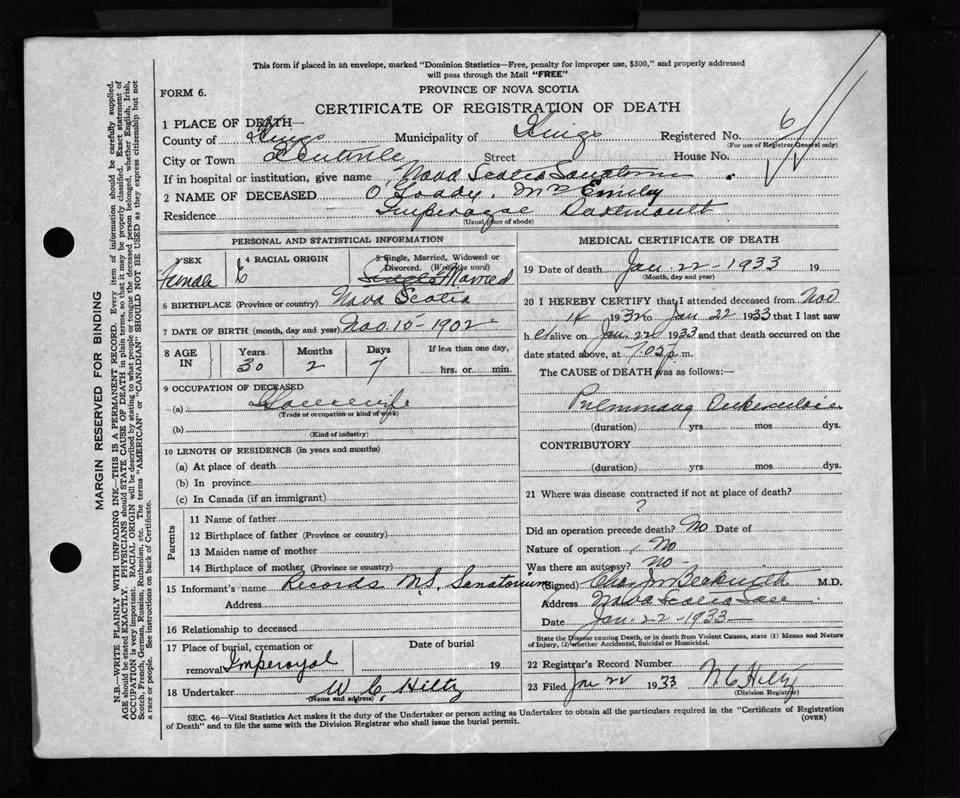 This form if placed in an envelope, marked "Dominion Statistics—Free, penalty for improper use, $300," and properly addressed
will pass through the Mail "FREE"
FORM 6.
PROVINCE OF NOVA SCOTIA
CERTIFICATE OF REGISTRATION OF DEATH
1 PLACE OF DEATH
County of Kings Municipality of Kings Registered No. 6
(For use of Registrar General only)
City or Town Kentville Street House No.
If in hospital or institution, give name Nova Scotia Sanatorium
2 NAME OF DECEASED O'Toady, Mrs Emily
Residence Imperoyal Dartmouth
(Usual place of abode)
PERSONAL AND STATISTICAL INFORMATION
3 SEX Female
4 RACIAL ORIGIN
5 Single, Married, Widowed or
Divorced. (Write the word)
Single Married
6 BIRTHPLACE (Province or country) Nova Scotia
7 DATE OF BIRTH (month, day and year) Nov. 15 - 1902
8 AGE IN Years Months Days If less than one day,
30 2 7 hrs. or min.
9 OCCUPATION OF DECEASED
(a) Housewife
(Trade of occupation or kind of work)
(b)
(Kind of industry)
10 LENGTH OF RESIDENCE (in years and months)
(a) At place of death
(b) In province
(c) In Canada (if an immigrant)
Parents
11 Name of father
12 Birthplace of father (Province or country)
13 Maiden name of mother
14 Birthplace of mother (Province or country)
15 Informant's name Records N.S. Sanatorium
Address
16 Relationship to deceased
17 Place of burial, cremation or Date of burial
removal Imperoyal 19
18 Undertaker W C Hiltz
(Name and address)
MEDICAL CERTIFICATE OF DEATH
19 Date of death Jan. 22 - 1933 19
(Month, day and year)
20 I HEREBY CERTIFY that I attended deceased from Nov
14 1932 to Jan 22 1933 that I last saw
h er alive on Jan. 22 1933 and that death occurred on the
date stated above, at 7.05 p. m.
The CAUSE of DEATH was as follows:—
Pulmonary Tuberculosis
(duration) yrs mos dys.
CONTRIBUTORY
(duration) yrs mos dys.
21 Where was disease contracted if not at place of death?
?
Did an operation precede death? No Date of
Nature of operation No
Was there an autopsy? No -
(Signed) Beckwith M.D.
Address Nova Scotia San
Date Jan. 22 - 1933
State the Disease causing Death, or in death from Violent Causes, state (1) Means and Nature
of Injury, (2) whether Accidental, Suicidal or Homicidal.
22 Registrar's Record Number
23 Filed Jan 22 1933 W C Hiltz
(Division Registrar)
SEC. 46—Vital Statistics Act makes it the duty of the Undertaker or person acting as Undertaker to obtain all the particulars required in the "Certificate of Registration
of Death" and to file the same with the Division Registrar who shall issue the burial permit. (OVER)
MARGIN RESERVED FOR BINDING
N.B.—WRITE PLAINLY WITH UNFADING INK—THIS IS A PERMANENT RECORD. Every item of information should be carefully supplied.
AGE should be stated EXACTLY. PHYSICIANS should STATE CAUSE OF DEATH in plain terms, so that it may be properly classified. Exact statement of
OCCUPATION is very important. RACIAL ORIGIN will be described by stating to what people or tongue the deceased person belonged, whether English, Irish,
Scotch, French, German, Russian, Ruthenian, etc. The terms "AMERICAN" or "CANADIAN" SHOULD NOT BE USED as they express citizenship but not
a race or people. See instructions on back of Certificate.